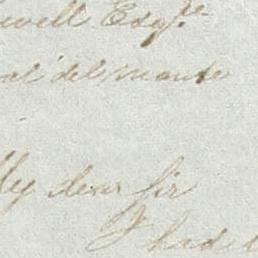 well Esqre
al del monte
My dear Sir
I had